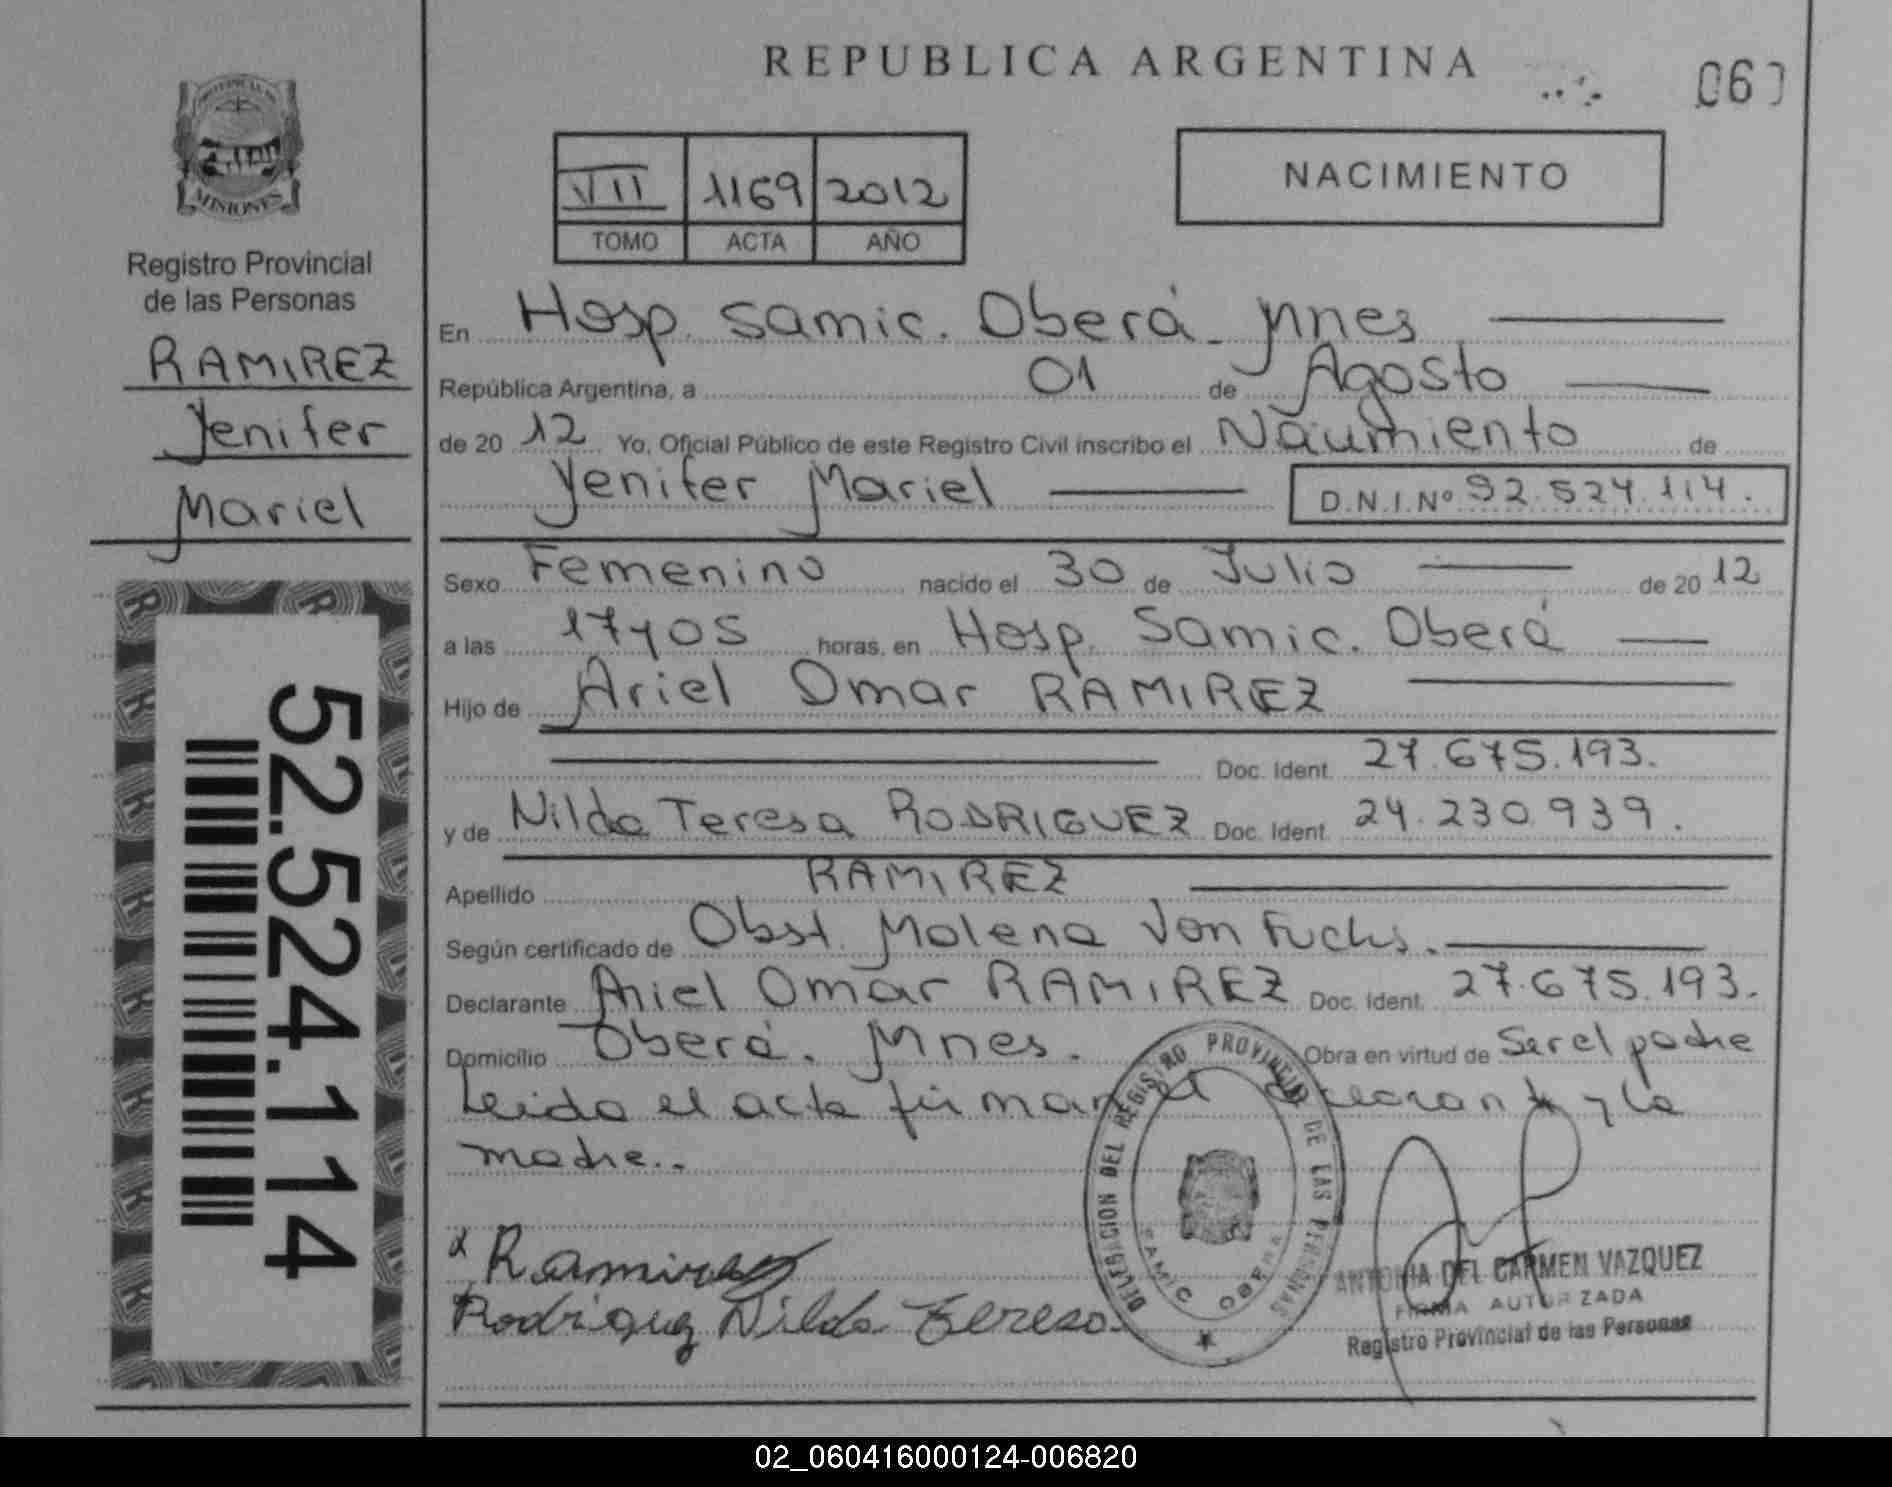 REPUBLICA ARGENTINA
060
MISIONES
Registro Provincial
de las Personas
RAMIREZ
Yenifer
Mariel
52.524.114
VII 1169 2012
TOMO ACTA AÑO
NACIMIENTO
En Hosp. Samic. Oberá Mnes
República Argentina, a 01 de Agosto
de 2012 Yo, Oficial Público de este Registro Civil inscribo el Nacimiento de
Yenifer Mariel D.N.I.Nº 52.524.114.
Sexo Femenino nacido el 30 de Julio de 2012
a las 17y05 horas, en Hosp. Samic. Oberá
Hijo de Ariel Omar RAMIREZ
Doc. Ident. 27.675.193.
y de Nilda Teresa RODRIGUEZ Doc. Ident. 24.230.939.
Apellido RAMIREZ
Según certificado de Obst. Malena Von Fuchs.
Declarante Ariel Omar RAMIREZ Doc. Ident. 27.675.193.
Domicilio Oberá. Mnes. Obra en virtud de Ser el padre
Leida el acta firman el declarante y la
madre..
Ramirez
Rodriguez Nilda Teresa
DELEGACION DEL REGISTRO PROVINCIAL DE LAS PERSONAS
SAMIC OBERA
ANTONIA DEL CARMEN VAZQUEZ
FIRMA AUTORIZADA
Registro Provincial de las Personas
02_060416000124-006820